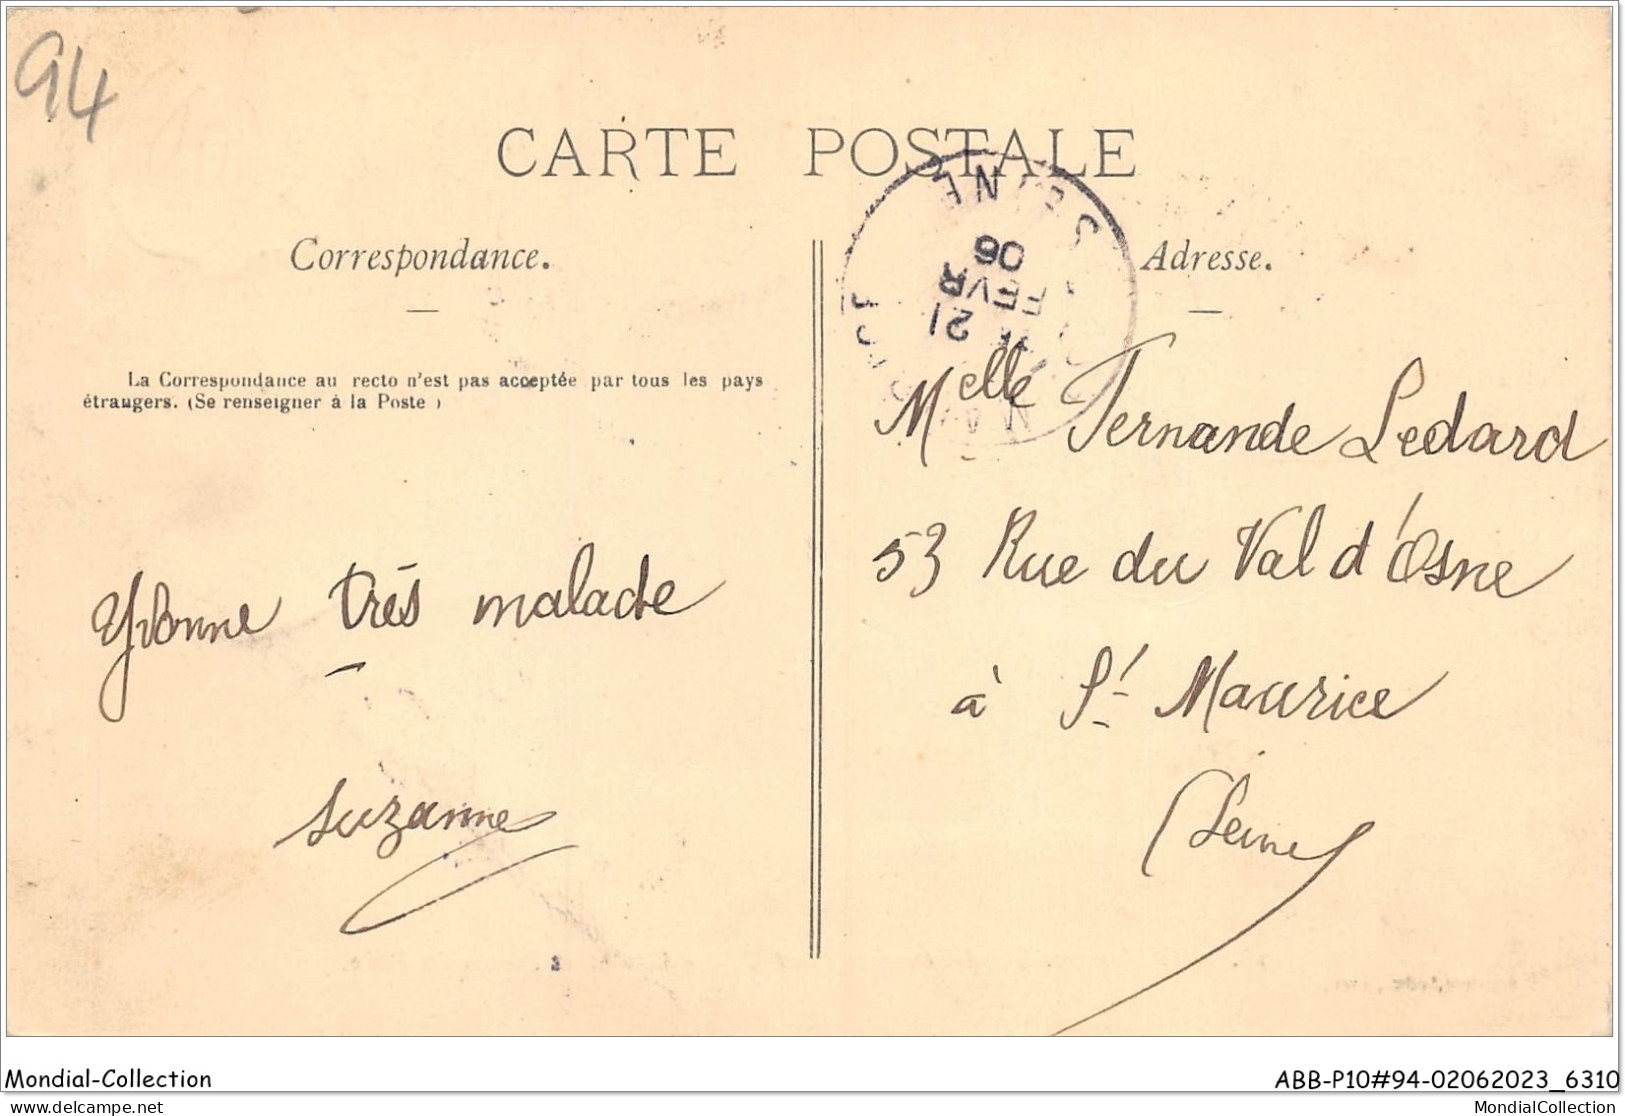 94
CARTE POSTALE
SEINE
21
FEVR
06
Correspondance.
Adresse.
La Correspondance au recto n'est pas acceptée par tous les pays
étrangers. (Se renseigner à la Poste)
Yvonne très malade
Suzanne
Melle Fernande Ledard
53 Rue du Val d'Osne
à St Maurice
(Seine)
Mondial-Collection
ABB-P10#94-02062023_6310
delcampe.net
MondialCollection